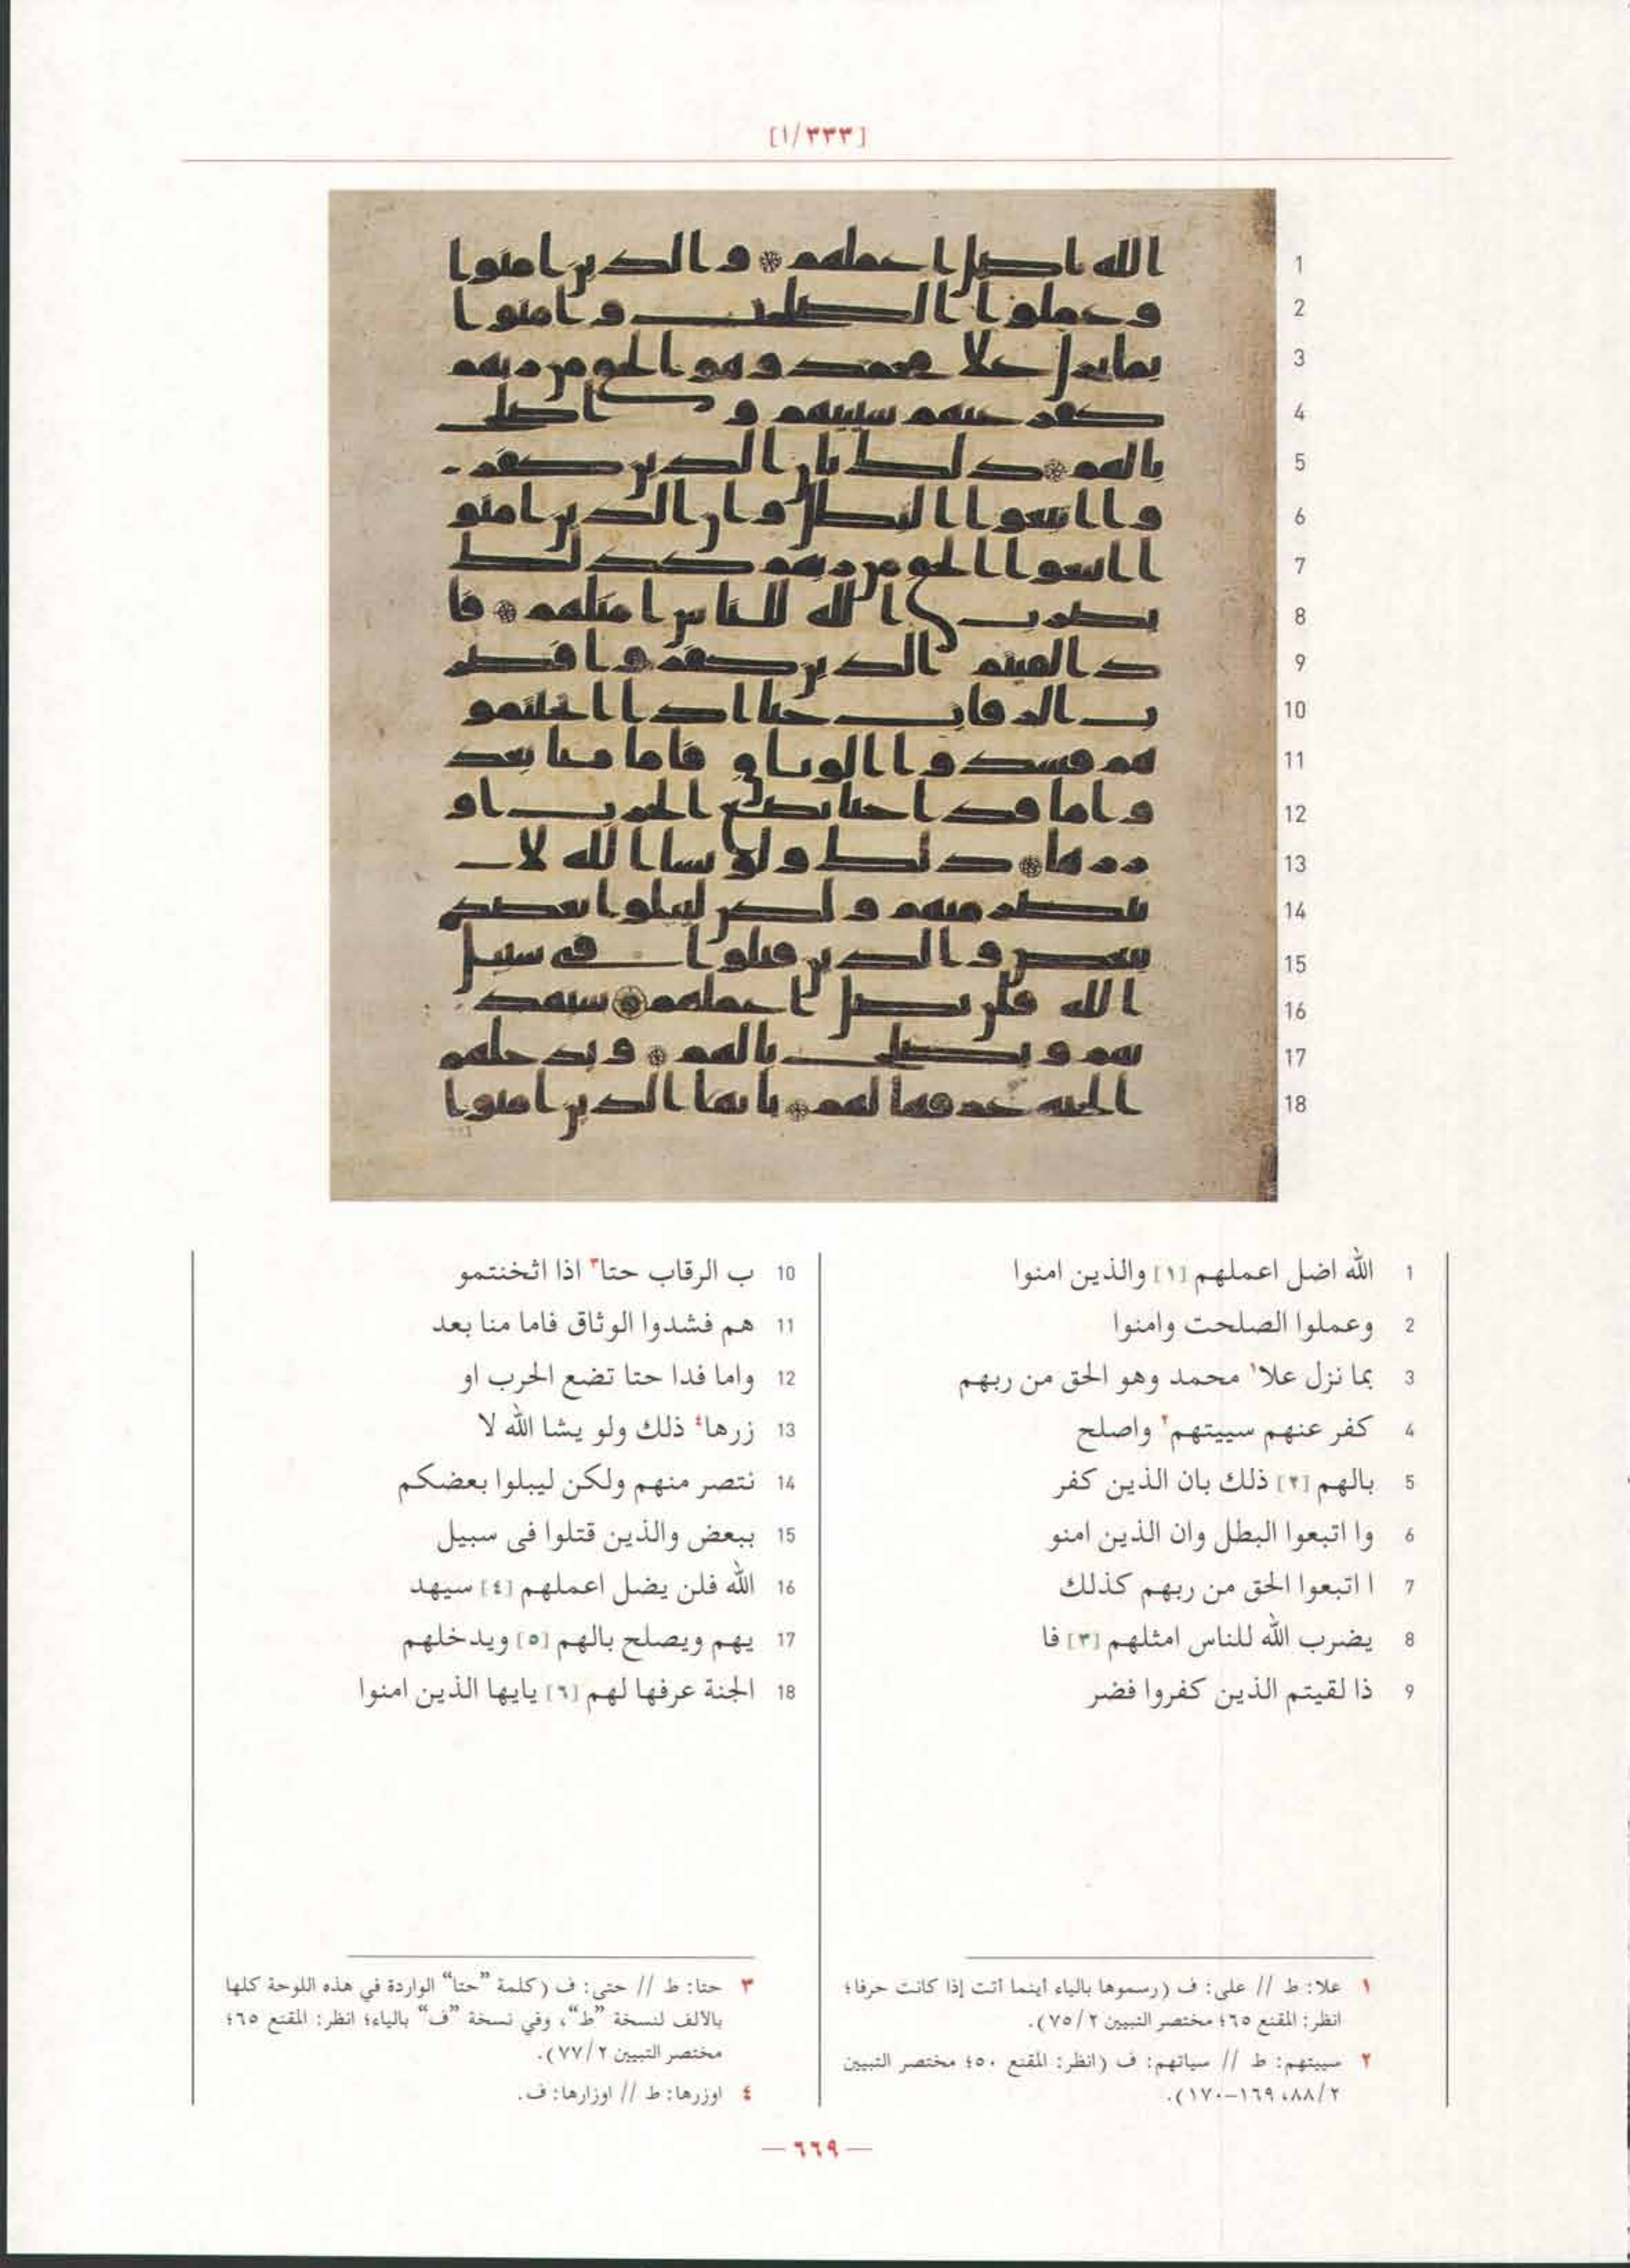 [١/٣٣٣]
1
2
3
4
5
6
7
8
9
10
11
12
13
14
15
16
17
18
1 الله اضل اعملهم [١] والذين امنوا
2 وعملوا الصلحت وامنوا
3 بما نزل علا١ محمد وهو الحق من ربهم
4 كفر عنهم سييتهم٢ واصلح
5 بالهم [٢] ذلك بان الذين كفر
6 وا اتبعوا البطل وان الذين امنو
7 ا اتبعوا الحق من ربهم كذلك
8 يضرب الله للناس امثلهم [٣] فا
9 ذا لقيتم الذين كفروا فضر
10 ب الرقاب حتا٣ اذا اثخنتمو
11 هم فشدوا الوثاق فاما منا بعد
12 واما فدا حتا تضع الحرب او
13 زرها٤ ذلك ولو يشا الله لا
14 نتصر منهم ولكن ليبلوا بعضكم
15 ببعض والذين قتلوا فى سبيل
16 الله فلن يضل اعملهم [٤] سيهد
17 يهم ويصلح بالهم [٥] ويدخلهم
18 الجنة عرفها لهم [٦] يايها الذين امنوا
١ علا: ط // على: ف (رسموها بالياء أينما أتت إذا كانت حرفا؛
انظر: المقنع ٦٥؛ مختصر التبيين ٧٥/٢).
٢ سييتهم: ط // سياتهم: ف (انظر: المقنع ٥٠؛ مختصر التبيين
٨٨/٢، ١٦٩-١٧٠).
٣ حتا: ط // حتى: ف (كلمة “حتا” الواردة في هذه اللوحة كلها
بالألف لنسخة “ط”، وفي نسخة “ف” بالياء؛ انظر: المقنع ٦٥؛
مختصر التبيين ٧٧/٢).
٤ اوزرها: ط // اوزارها: ف.
— ٦٦٩ —